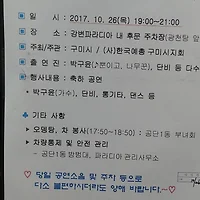 ■ 일 시 : 2017. 10. 26(목) 19:00~21:00
■ 장 소 : 강변파라디아 내 후문 주차장(광천탕 앞
■ 주최/주관 : 구미시 / (사)한국예총 구미시지회
■ 출 연 진 : 박구윤(뿐이고, 나무꾼), 단비 등 다수
■ 행사내용 : 축하 공연
- 박구윤(가수), 단비, 통기타, 댄스 등
✚ 기타 사항
- 오뎅탕, 차 봉사(17:50~18:50) : 공단1동 부녀회
- 차량통제 및 안전 관리
→ 공단1동 방범대, 파라디아 관리사무소
♡ 당일 공연소음 및 주차 등으로
다소 불편하시더라도 양해 바랍니다~ ♡